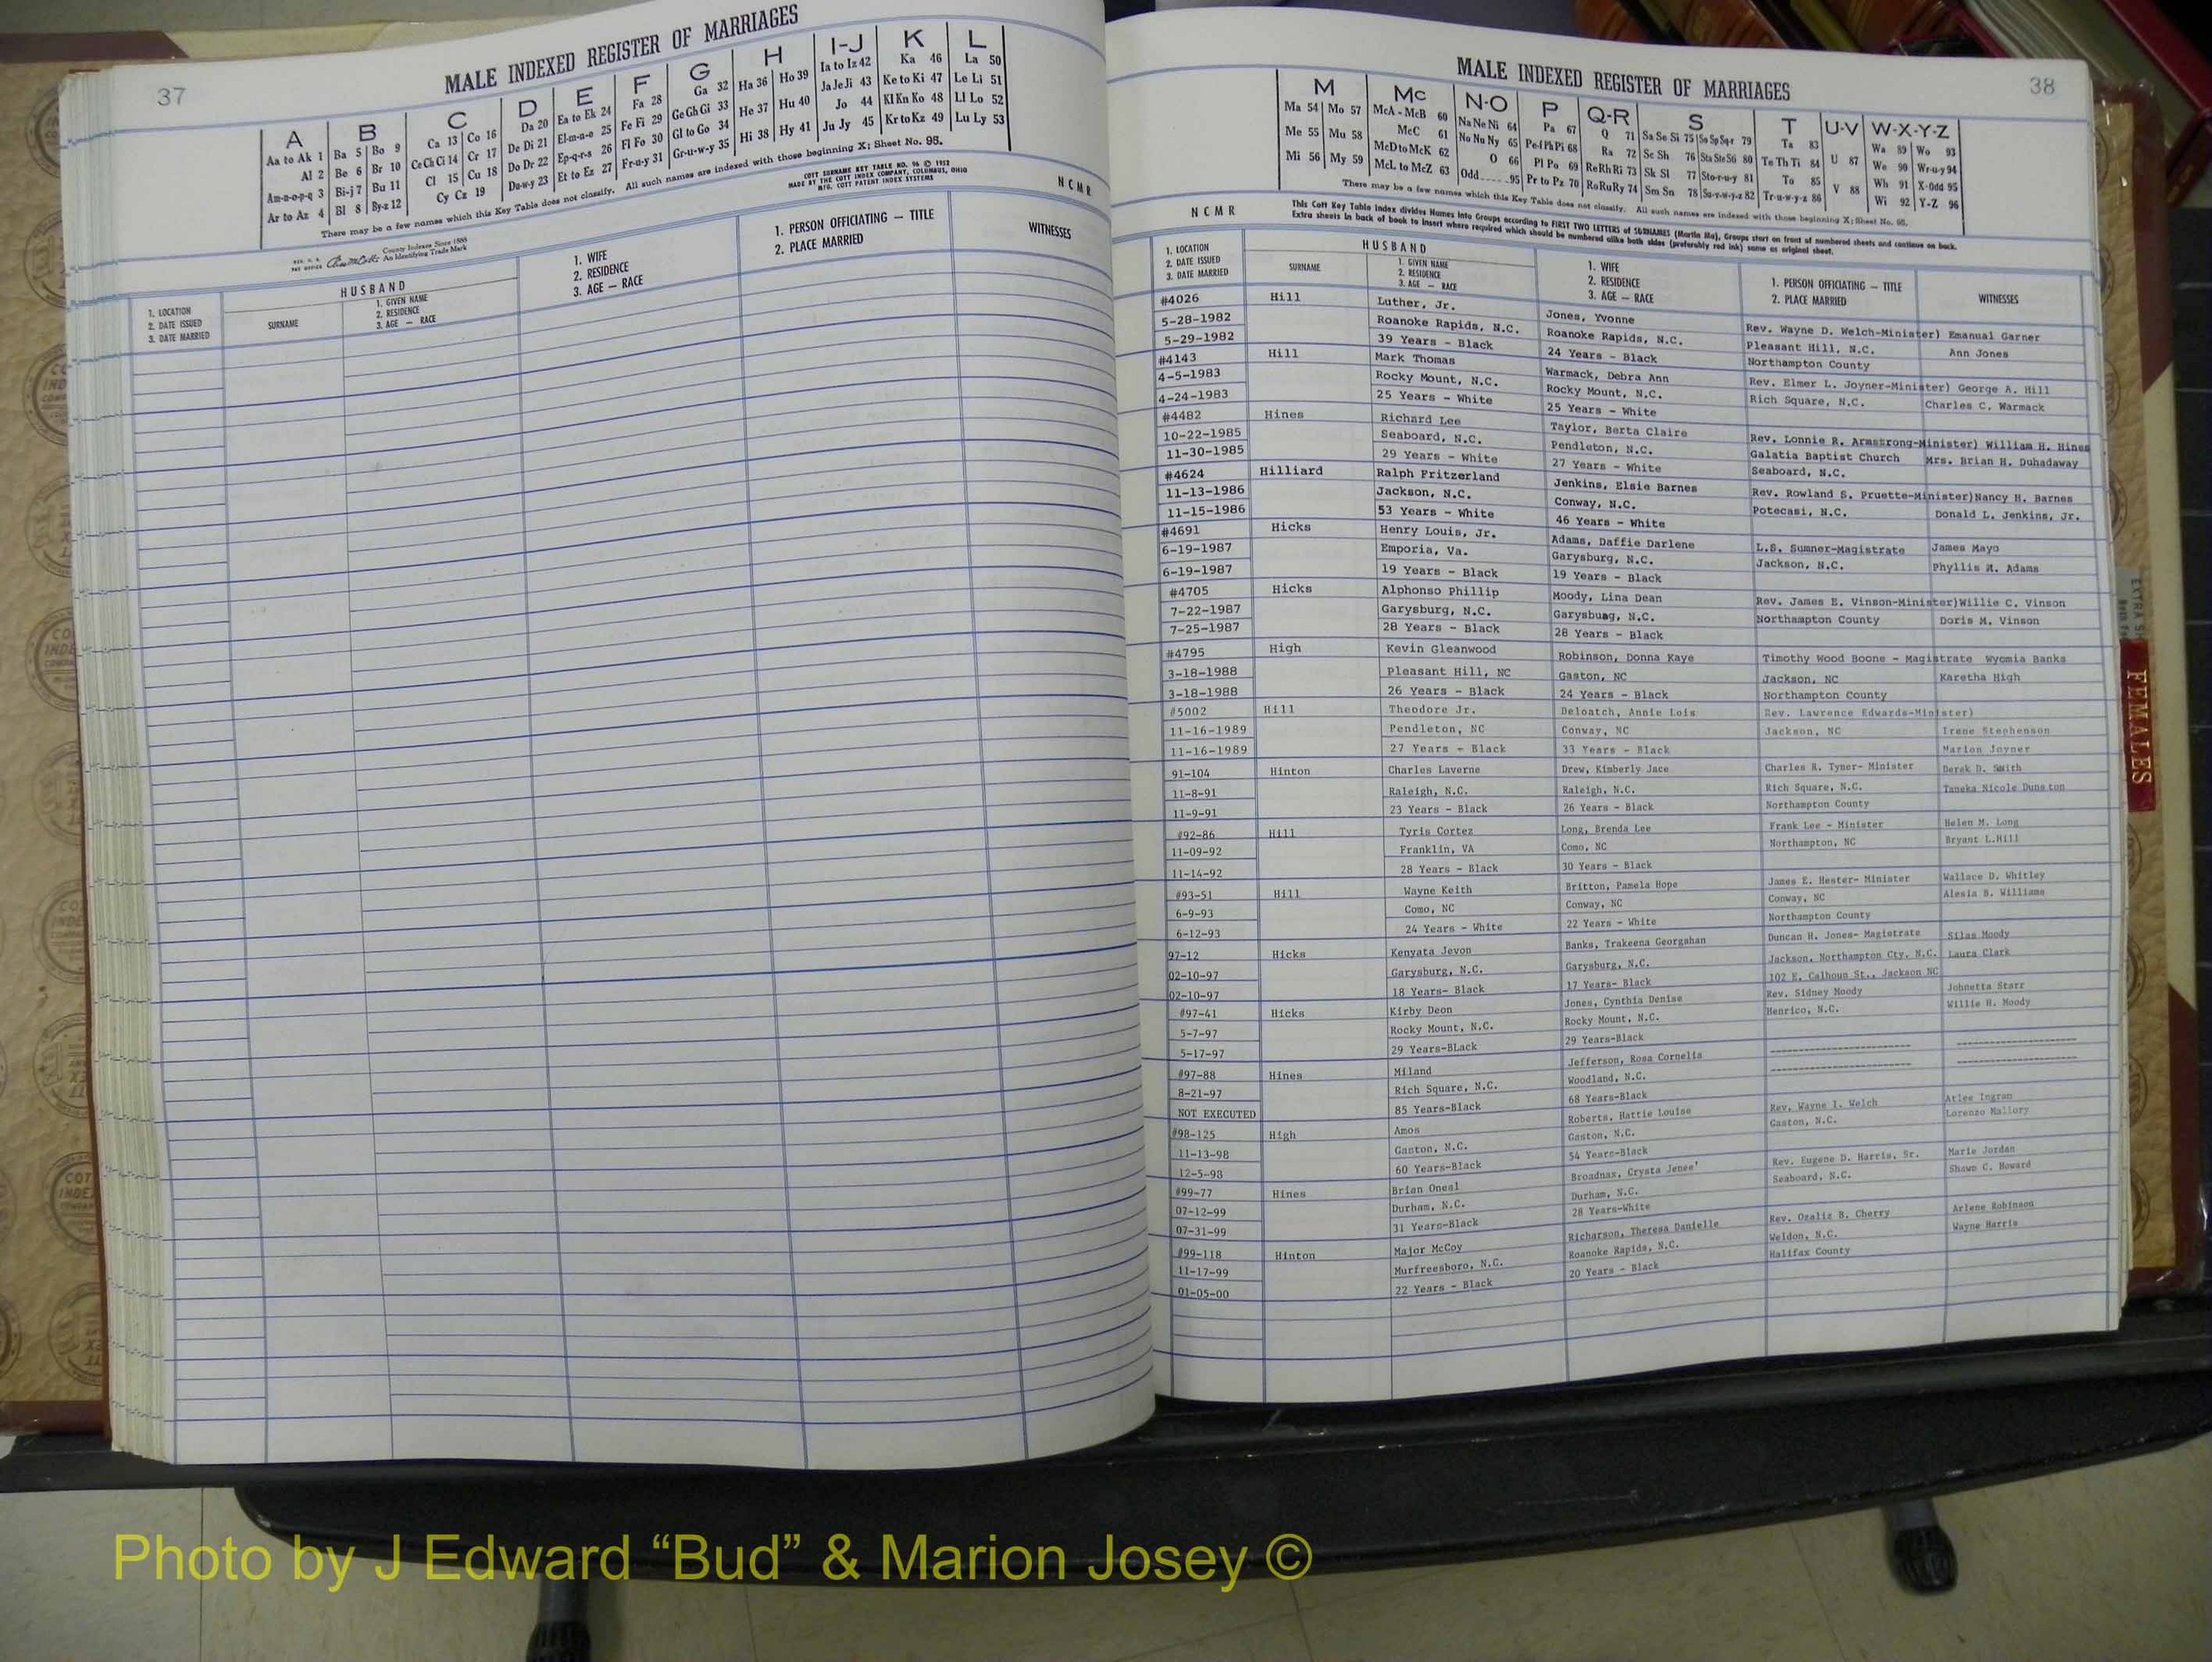 37
MALE INDEXED REGISTER OF MARRIAGES
A B C D E F G H I-J K L
Aa to Ak 1 Ba 5 Bo 9 Ca 13 Co 16 Da 20 Ea to Ek 24 Fa 28 Ga 32 Ha 36 Ho 39 Ia to Iz 42 Ka 46 La 50
Al 2 Be 6 Br 10 Ce Ch Ci 14 Cr 17 De Di 21 El-m-n-o 25 Fe Fi 29 Ge Gh Gi 33 He 37 Hu 40 Ja Je Ji 43 Ke to Ki 47 Le Li 51
Am-n-o-p-q 3 Bi-j 7 Bu 11 Cl 15 Cu 18 Do Dr 22 Ep-q-r-s 26 Fl Fo 30 Gl to Go 34 Hi 38 Hy 41 Jo 44 Kl Kn Ko 48 Ll Lo 52
Ar to Az 4 Bl 8 By-z 12 Cy Cz 19 Du-w-y 23 Et to Ez 27 Fr-u-y 31 Gr-u-w-y 35 Ju Jy 45 Kr to Kz 49 Lu Ly 53
There may be a few names which this Key Table does not classify. All such names are indexed with those beginning X; Sheet No. 95.
County Indexes Since 1888
An Identifying Trade Mark
COTT SURNAME KEY TABLE NO. 96 © 1952
MADE BY THE COTT INDEX COMPANY, COLUMBUS, OHIO
MFG. COTT PATENT INDEX SYSTEMS
N C M R
1. LOCATION
2. DATE ISSUED
3. DATE MARRIED
HUSBAND
SURNAME
1. GIVEN NAME
2. RESIDENCE
3. AGE — RACE
1. WIFE
2. RESIDENCE
3. AGE — RACE
1. PERSON OFFICIATING — TITLE
2. PLACE MARRIED
WITNESSES
38
MALE INDEXED REGISTER OF MARRIAGES
M Mc N-O P Q-R S T U-V W-X-Y-Z
Ma 54 Mo 57 McA - McB 60 Na Ne Ni 64 Pa 67 Q 71 Sa Se Si 75 So Sp Sq-r 79 Ta 83 Wa 89 Wo 93
Me 55 Mu 58 McC 61 No Nu Ny 65 Pe-f Ph Pi 68 Ra 72 Se Sh 76 Sta Ste Sti 80 Te Th Ti 84 U 87 We 90 Wr-u-y 94
Mi 56 My 59 McD to McK 62 O 66 Pl Po 69 Re Rh Ri 73 Sk Sl 77 Sto-r-u-y 81 To 85 V 88 Wh 91 X-Odd 95
McL to McZ 63 Odd 95 Pr to Pz 70 Ro Ru Ry 74 Sm Sn 78 Su-v-w-y-z 82 Tr-u-w-y-z 86 Wi 92 Y-Z 96
There may be a few names which this Key Table does not classify. All such names are indexed with those beginning X; Sheet No. 95.
N C M R
This Cott Key Table Index divides Names into Groups according to FIRST TWO LETTERS of SURNAMES (Martin Ma), Groups start on front of numbered sheets and continue on back.
Extra sheets in back of book to insert where required which should be numbered alike both sides (preferably red ink) same as original sheet.
1. LOCATION
2. DATE ISSUED
3. DATE MARRIED
HUSBAND
SURNAME
1. GIVEN NAME
2. RESIDENCE
3. AGE — RACE
1. WIFE
2. RESIDENCE
3. AGE — RACE
1. PERSON OFFICIATING — TITLE
2. PLACE MARRIED
WITNESSES
#4026 Hill Luther, Jr. Jones, Yvonne Rev. Wayne D. Welch-Minister) Emanual Garner
5-28-1982 Roanoke Rapids, N.C. Roanoke Rapids, N.C. Pleasant Hill, N.C. Ann Jones
5-29-1982 39 Years - Black 24 Years - Black Northampton County
#4143 Hill Mark Thomas Warmack, Debra Ann Rev. Elmer L. Joyner-Minister) George A. Hill
4-5-1983 Rocky Mount, N.C. Rocky Mount, N.C. Rich Square, N.C. Charles C. Warmack
4-24-1983 25 Years - White 25 Years - White
#4482 Hines Richard Lee Taylor, Berta Claire Rev. Lonnie R. Armstrong-Minister) William H. Hines
10-22-1985 Seaboard, N.C. Pendleton, N.C. Galatia Baptist Church Mrs. Brian H. Duhadaway
11-30-1985 29 Years - White 27 Years - White Seaboard, N.C.
#4624 Hilliard Ralph Fritzerland Jenkins, Elsie Barnes Rev. Rowland S. Pruette-Minister)Nancy H. Barnes
11-13-1986 Jackson, N.C. Conway, N.C. Potecasi, N.C. Donald L. Jenkins, Jr.
11-15-1986 53 Years - White 46 Years - White
#4691 Hicks Henry Louis, Jr. Adams, Daffie Darlene L.S. Sumner-Magistrate James Mayo
6-19-1987 Emporia, Va. Garysburg, N.C. Jackson, N.C. Phyllis M. Adams
6-19-1987 19 Years - Black 19 Years - Black
#4705 Hicks Alphonso Phillip Moody, Lina Dean Rev. James E. Vinson-Minister)Willie C. Vinson
7-22-1987 Garysburg, N.C. Garysbuag, N.C. Northampton County Doris M. Vinson
7-25-1987 28 Years - Black 28 Years - Black
#4795 High Kevin Gleanwood Robinson, Donna Kaye Timothy Wood Boone - Magistrate Wyomia Banks
3-18-1988 Pleasant Hill, NC Gaston, NC Jackson, NC Karetha High
3-18-1988 26 Years - Black 24 Years - Black Northampton County
#5002 Hill Theodore Jr. Deloatch, Annie Lois Rev. Lawrence Edwards-Minister)
11-16-1989 Pendleton, NC Conway, NC Jackson, NC Irene Stephenson
11-16-1989 27 Years - Black 33 Years - Black Marion Joyner
91-104 Hinton Charles Laverne Drew, Kimberly Jace Charles R. Tyner- Minister Derek D. Smith
11-8-91 Raleigh, N.C. Raleigh, N.C. Rich Square, N.C. Taneka Nicole Dunston
11-9-91 23 Years - Black 26 Years - Black Northampton County
#92-86 Hill Tyris Cortez Long, Brenda Lee Frank Lee - Minister Helen M. Long
11-09-92 Franklin, VA Como, NC Northampton, NC Bryant L.Hill
11-14-92 28 Years - Black 30 Years - Black
#93-51 Hill Wayne Keith Britton, Pamela Hope James E. Hester- Minister Wallace D. Whitley
6-9-93 Como, NC Conway, NC Conway, NC Alesia B. Williams
6-12-93 24 Years - White 22 Years - White Northampton County
97-12 Hicks Kenyata Jevon Banks, Trakeena Georgahan Duncan H. Jones- Magistrate Silas Moody
02-10-97 Garysburg, N.C. Garysburg, N.C. Jackson, Northampton Cty. N.C. Laura Clark
02-10-97 18 Years- Black 17 Years- Black 102 E. Calhoun St., Jackson NC
#97-41 Hicks Kirby Deon Jones, Cynthia Denise Rev. Sidney Moody Johnetta Starr
5-7-97 Rocky Mount, N.C. Rocky Mount, N.C. Henrico, N.C. Willie H. Moody
5-17-97 29 Years-BLack 29 Years-Black
#97-88 Hines Miland Jefferson, Rosa Cornelia
8-21-97 Rich Square, N.C. Woodland, N.C.
NOT EXECUTED 85 Years-Black 68 Years-Black
#98-125 High Amos Roberts, Hattie Louise Rev. Wayne I. Welch Atlee Ingran
11-13-98 Gaston, N.C. Gaston, N.C. Gaston, N.C. Lorenzo Mallory
12-5-98 60 Years-Black 54 Years-Black
#99-77 Hines Brian Oneal Broadnax, Crysta Jenee' Rev. Eugene D. Harris, Sr. Marie Jordan
07-12-99 Durham, N.C. Durham, N.C. Seaboard, N.C. Shawn C. Howard
07-31-99 31 Years-Black 28 Years-White
#99-118 Hinton Major McCoy Richarson, Theresa Danielle Rev. Ozaliz B. Cherry Arlene Robinson
11-17-99 Murfreesboro, N.C. Roanoke Rapids, N.C. Weldon, N.C. Wayne Harris
01-05-00 22 Years - Black 20 Years - Black Halifax County
EXTRA
FEMALES
Photo by J Edward “Bud” & Marion Josey ©